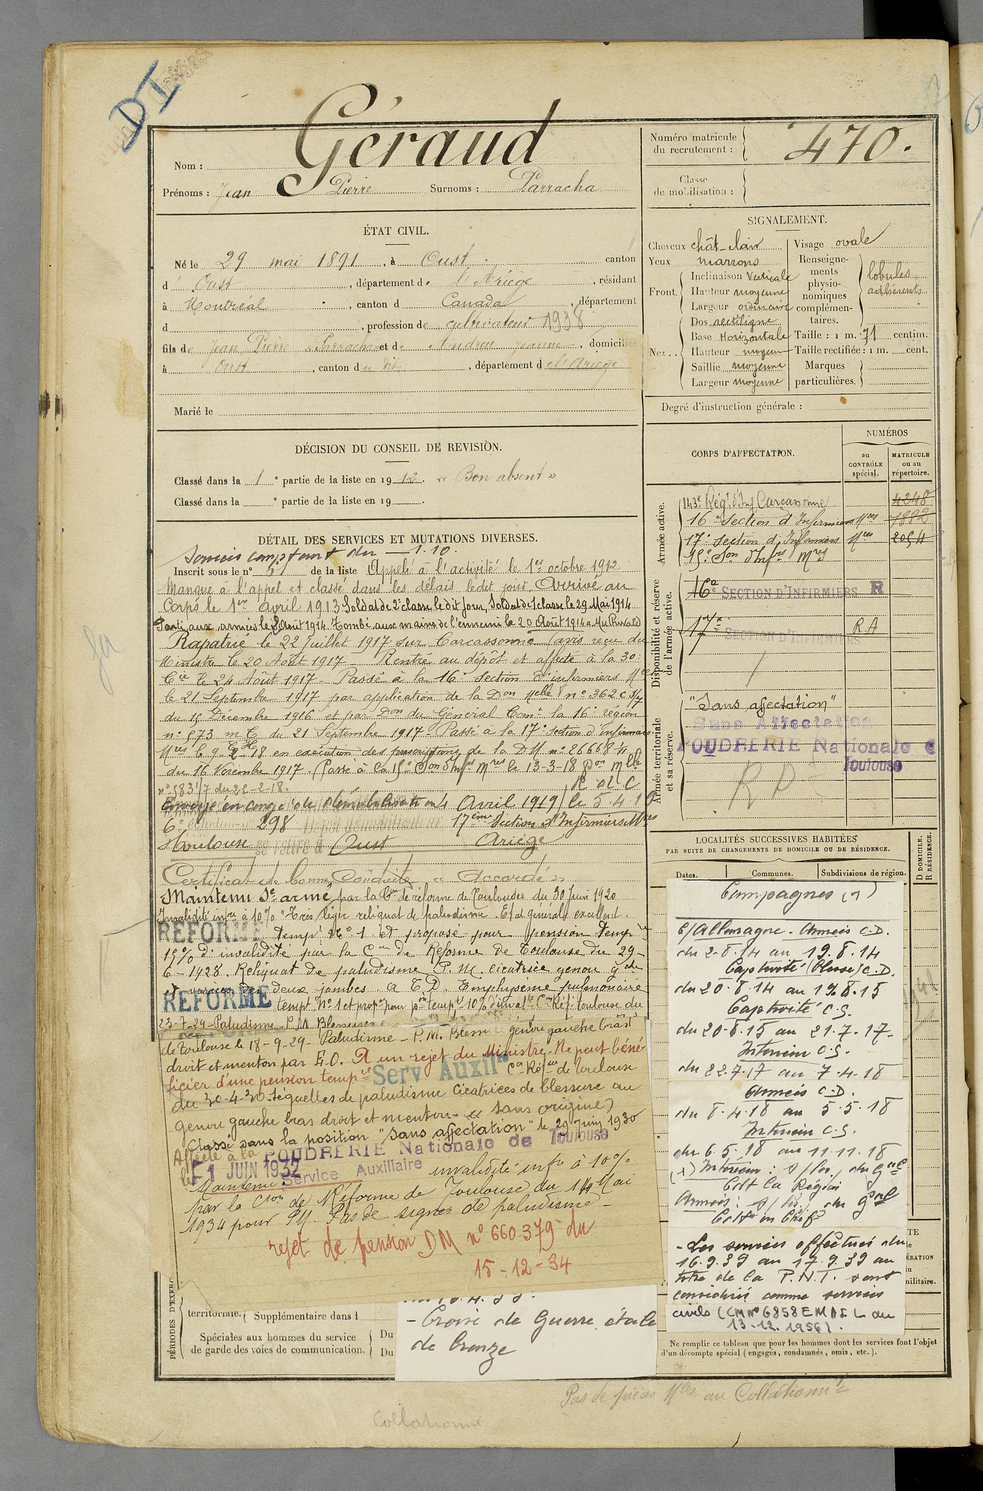 DI
Nom : Géraud
Prénoms : Jean Pierre Surnoms : Parracha
Numéro matricule du recrutement : 470.
Classe de mobilisation :
ÉTAT CIVIL.
Né le 29 mai 1891, à Oust canton
d Oust, département de l'Ariège, résidant
à Montréal, canton d Canada, département
d , profession de cultivateur 1938
fils de Jean Pierre Parracha et de Andreu Jeanne, domicilié
à Oust, canton du dit, département de l'Ariège
Marié le
DÉCISION DU CONSEIL DE REVISION.
Classé dans la 1e partie de la liste en 1912. « Bon absent »
Classé dans la e partie de la liste en 19 .
SIGNALEMENT.
Cheveux chât-clair
Yeux marrons
Front. Inclinaison Verticale
Hauteur moyenne
Largeur ordinaire
Nez. Dos rectiligne
Base Horizontale
Hauteur moyen
Saillie moyenne
Largeur moyenne
Visage ovale
Renseignements physionomiques complémentaires. lobules adhérents
Taille : 1 m. 71 centim.
Taille rectifiée : 1 m. cent.
Marques particulières.
Degré d'instruction générale :
DÉTAIL DES SERVICES ET MUTATIONS DIVERSES.
Services comptant du 1.10.
Inscrit sous le n° 5 de la liste Appelé à l'activité le 1er octobre 1912
Manque à l'appel et classé dans les délais ledit jour. Arrivé au
Corps le 1er avril 1913 Soldat de 2e classe le dit jour, Soldat de 1e classe le 29 Mai 1914
Parti aux armées le Août 1914. Tombé aux mains de l'ennemi le 20 Août 1914 à
Rapatrié le 22 juillet 1917 sur Carcassonne (avis reçu du
Ministre le 20 Août 1917. Rentré au dépôt et affecté à la 30e
Cie le 24 Août 1917. Passé à la 16e Section d'infirmiers Mres
le 21 Septembre 1917 par application de la Don Melle n° 362 C
du 15 Décembre 1916 et par Don du Général Comt la 16e région
n° 873 m.C du 21 Septembre 1917. Passé à la 17e Section d'infirmiers
Mres le 9 2 18 en exécution des prescriptions de la D.M. n° 26668
du 16 Novembre 1917. Passé à la 15e Son d'Infrs Mres le 13-3-18 Don Mlle
n° 5831/7 du 22-2-18. R et C
Envoyé en congé de démobilisation 4 Avril 1919 le 5.4.19
6e échelon n° 298 Dépôt démobilisateur 17ème Section d'Infirmiers Mres
Toulouse se retire à Oust Ariège
Certificat de bonne conduite « Accordé »
Maintenu Sce armé par la Con de réforme de Toulouse du 30 juin 1920
Invalidité infre à 10%. Très léger reliquat de paludisme. Etat général excellent.
RÉFORMÉ tempre N° 1 et proposé pour pension tempre
15% d'invalidité par la Con de Réforme de Toulouse du 29-
6-1928. Reliquat de paludisme P.M. cicatrice genou gche
et varices des deux jambes. A E.P. Emphysème pulmonaire
RÉFORMÉ tempre N° 1 et propé pour pon tempre 10% invalté Con Réf. Toulouse du
23-7-29 Paludisme. P.M. Blessures
de Toulouse le 18-9-29. Paludisme - P.M. Blessre genou gauche bras
droit et menton par E.O. A un rejet du Ministre. Ne peut béné-
ficier d'une pension tempre Serv. Auxilre Con Réfme de Toulouse
du 30-4-30. Séquelles de paludisme Cicatrices de blessure au
genou gauche bras droit et menton « sans origine »
Classé dans la position "Sans affectation" le 29 juin 1930
Affecté à la POUDRERIE Nationale de Toulouse
le 1 JUIN 1932 Service Auxiliaire
Maintenu : invalidité infre à 10%
par la Cion de Réforme de Toulouse du 14 Mai
1934 pour P.M. Pas de signes de paludisme -
rejet de pension DM n° 660-379 du
15-12-34
CORPS D'AFFECTATION.
NUMÉROS
au CONTRÔLE spécial.
MATRICULE ou au répertoire.
Armée active.
143e Régt d'Inf Carcassonne 4248
16e Section d'Infirmiers Mres 1882
17e Section d'Infirmiers Mres 2054
15e Son d'Infrs Mres
Disponibilité et réserve de l'armée active.
16e SECTION D'INFIRMIERS R
17e SECTION D'INFIRMIERS RA
Armée territoriale et sa réserve.
"Sans affectation"
Sans Affectation
POUDRERIE Nationale de
Toulouse
LOCALITÉS SUCCESSIVES HABITÉES
PAR SUITE DE CHANGEMENTS DE DOMICILE OU DE RÉSIDENCE.
D DOMICILE. R RÉSIDENCE.
Dates. Communes. Subdivisions de région.
Campagnes (1)
C/Allemagne. Armées C.D.
du 2.8.14 au 19.8.14
Captivité (Blessé) C.D.
du 20.8.14 au 19.8.15
Captivité C.S.
du 20.8.15 au 21.7.17-
Intérieur C.S.
du 22.7.17 au 7.4.18
Armées C.D.
du 8.4.18 au 5.5.18
Intérieur C.S.
du 6.5.18 au 11.11.18
(1) Intérieur : s/les o. du Gral
Cdt la Région
Armées : s/les o. du Gral
Cdt en Chef
- Les services effectués du
16.9.39 au 17.9.39 au
titre de la P.N.T. sont
considérés comme services
civils (CM N° 6858 EMDIL du
13.12.1956).
Ne remplir ce tableau que pour les hommes dont les services font l'objet
d'un décompte spécial (engagés, condamnés, omis, etc.).
PÉRIODES D'EXERC
territoriale. Supplémentaire dans l
Spéciales aux hommes du service
de garde des voies de communication.
Du
Du
- Croix de Guerre étoile
de bronze
Pas de pièces Mles au Collationnt
Collationné